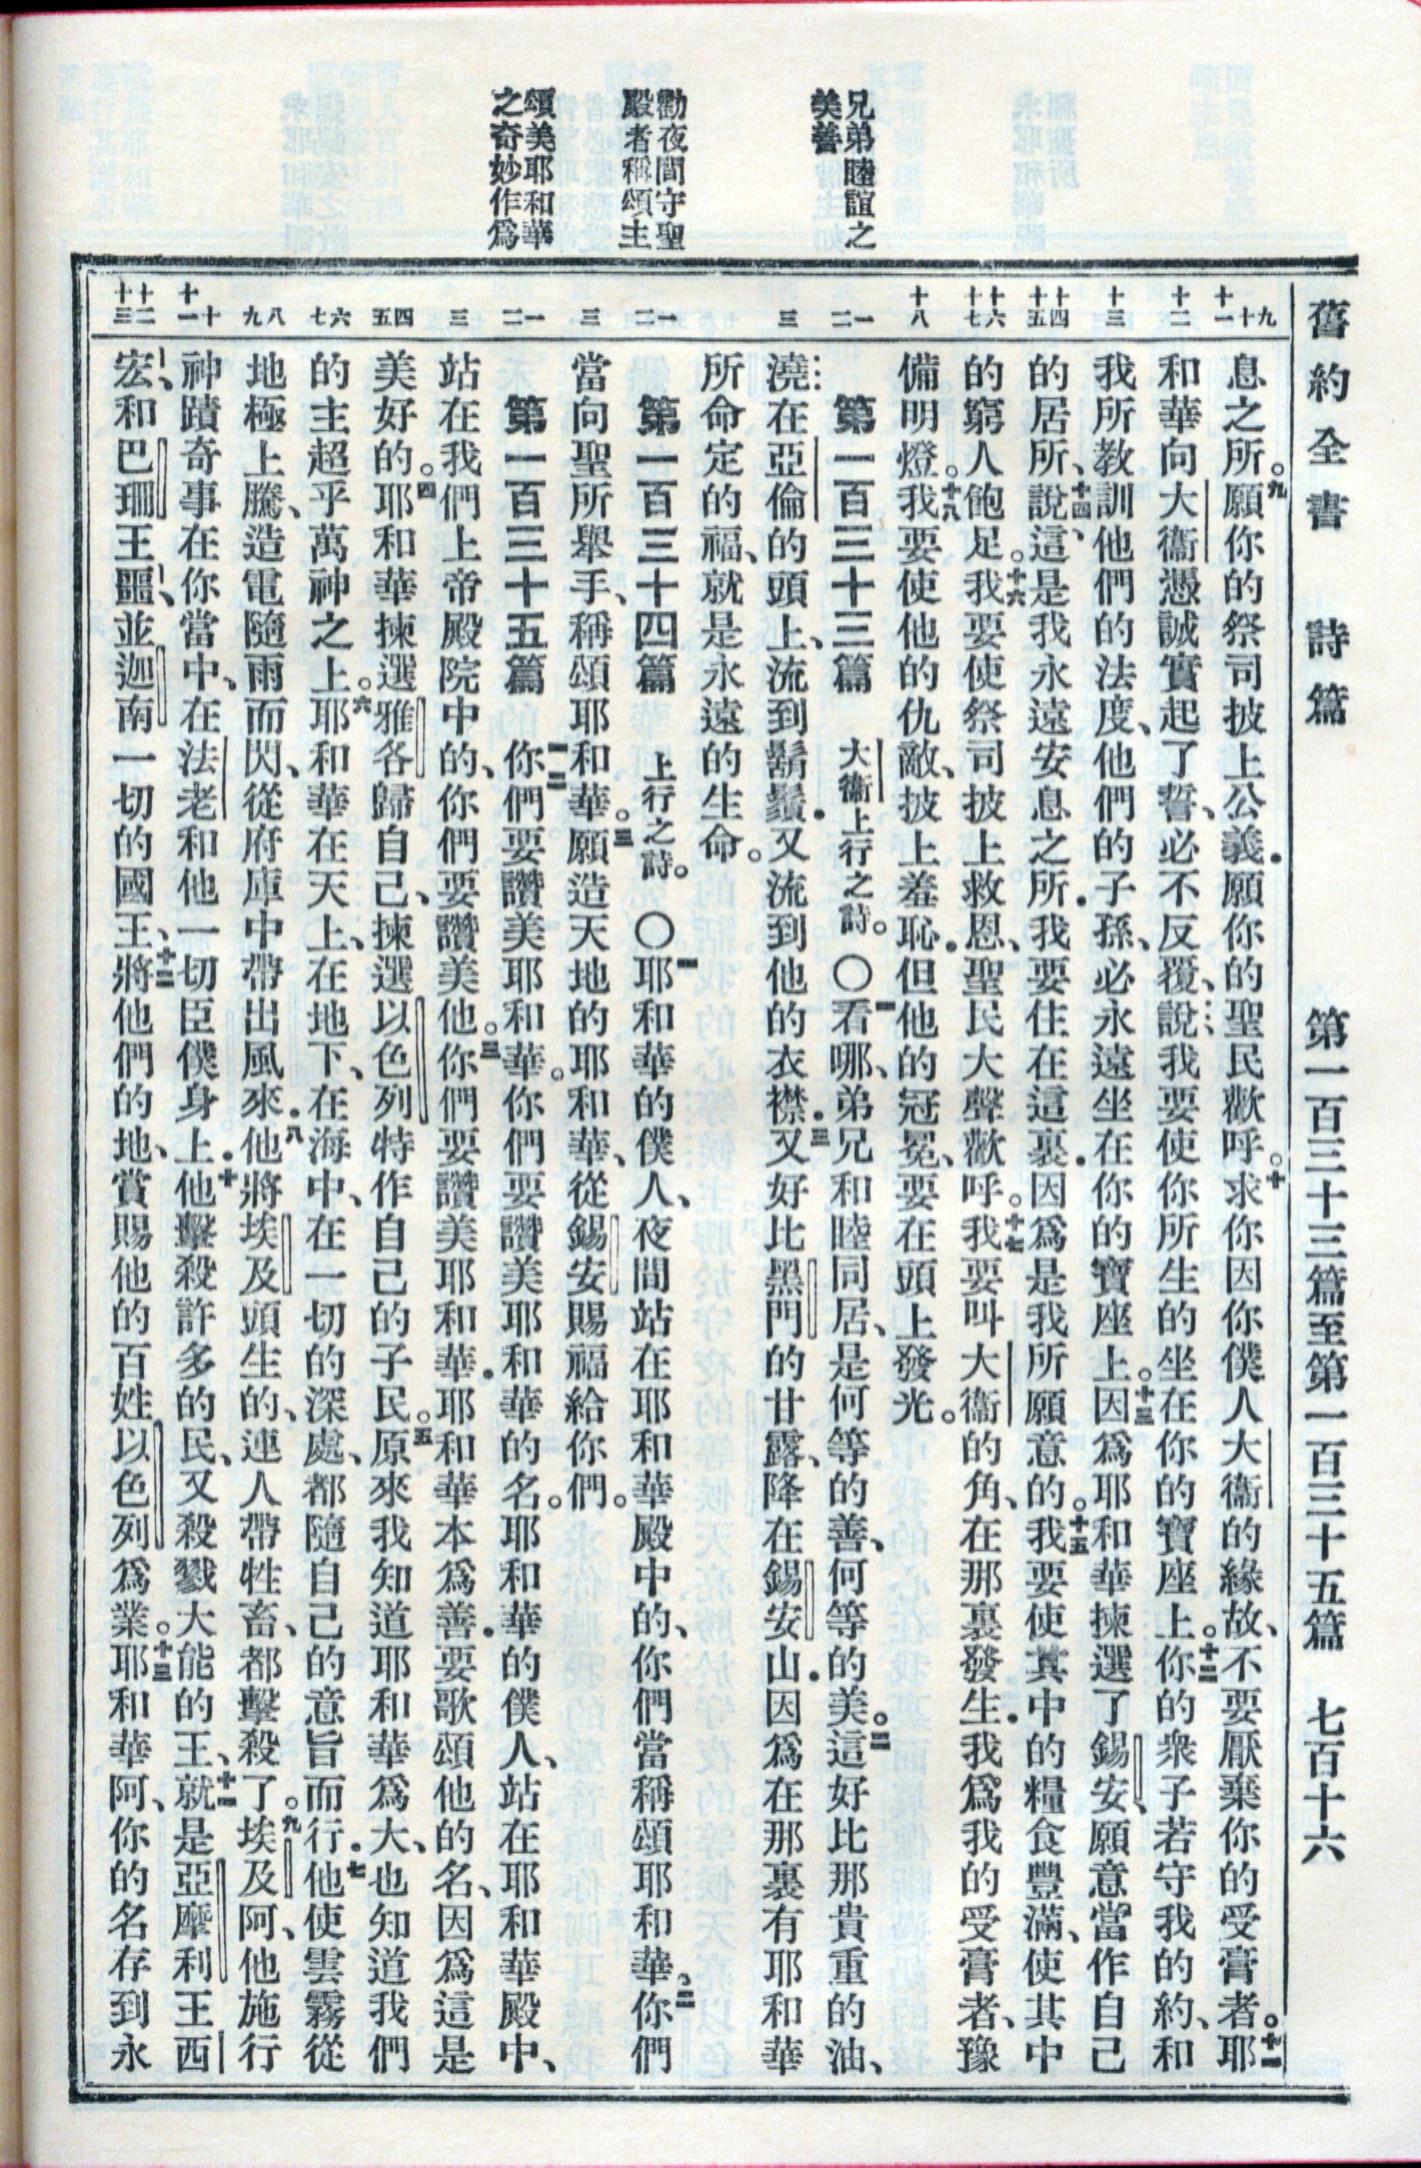 舊約全書　詩篇　第一百三十三篇至第一百三十五篇　七百十六
兄弟睦誼之
美善
勸夜間守聖
殿者稱頌主
頌美耶和華
之奇妙作爲
九
十
十一
十二
十三
十四
十五
十六
十七
十八
一
二
三
一
二
三
一
二
三
四
五
六
七
八
九
十
十一
十二
十三
息之所。九願你的祭司披上公義．願你的聖民歡呼。十求你因你僕人大衞的緣故、不要厭棄你的受膏者。十一耶
和華向大衞憑誠實起了誓、必不反覆、說我要使你所生的坐在你的寶座上。十二你的衆子若守我的約、和
我所教訓他們的法度、他們的子孫、必永遠坐在你的寶座上。十三因爲耶和華揀選了錫安、願意當作自己
的居所、十四說這是我永遠安息之所．我要住在這裏．因爲是我所願意的。十五我要使其中的糧食豐滿、使其中
的窮人飽足。十六我要使祭司披上救恩、聖民大聲歡呼。十七我要叫大衞的角、在那裏發生．我爲我的受膏者、豫
備明燈。十八我要使他的仇敵、披上羞恥．但他的冠冕、要在頭上發光。
第一百三十三篇　大衞上行之詩。○一看哪、弟兄和睦同居、是何等的善、何等的美。二這好比那貴重的油、
澆在亞倫的頭上、流到鬍鬚．又流到他的衣襟．三又好比黑門的甘露、降在錫安山．因爲在那裏有耶和華
所命定的福、就是永遠的生命。
第一百三十四篇　上行之詩。○一耶和華的僕人、夜間站在耶和華殿中的、你們當稱頌耶和華、二你們
當向聖所舉手、稱頌耶和華。三願造天地的耶和華、從錫安賜福給你們。
第一百三十五篇　一二你們要讚美耶和華。你們要讚美耶和華的名。耶和華的僕人、站在耶和華殿中、
站在我們上帝殿院中的、你們要讚美他。三你們要讚美耶和華．耶和華本爲善．要歌頌他的名、因爲這是
美好的。四耶和華揀選雅各歸自己、揀選以色列特作自己的子民。五原來我知道耶和華爲大、也知道我們
的主超乎萬神之上。六耶和華在天上、在地下、在海中、在一切的深處、都隨自己的意旨而行．七他使雲霧從
地極上騰、造電隨雨而閃、從府庫中帶出風來．八他將埃及頭生的、連人帶牲畜、都擊殺了。九埃及阿、他施行
神蹟奇事在你當中、在法老和他一切臣僕身上．十他擊殺許多的民、又殺戮大能的王、十一就是亞摩利王西
宏、和巴珊王噩、並迦南一切的國王、十二將他們的地、賞賜他的百姓以色列爲業。十三耶和華阿、你的名存到永